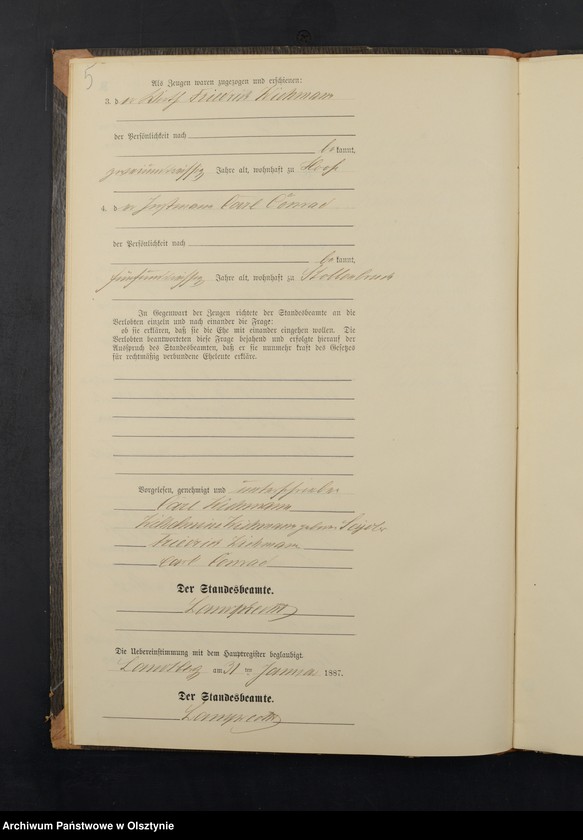 5
Als Zeugen waren zugezogen und erschienen:
3. der Friedrich Kuhmann
der Persönlichkeit nach
bekannt,
zweiunddreißig Jahre alt, wohnhaft zu
4. der Instmann Carl Conrad
der Persönlichkeit nach
bekannt,
fünfunddreißig Jahre alt, wohnhaft zu
In Gegenwart der Zeugen richtete der Standesbeamte an die
Verlobten einzeln und nach einander die Frage:
ob sie erklären, daß sie die Ehe mit einander eingehen wollen. Die
Verlobten beantworteten diese Frage bejahend und erfolgte hierauf der
Ausspruch des Standesbeamten, daß er sie nunmehr kraft des Gesetzes
für rechtmäßig verbundene Eheleute erkläre.
Vorgelesen, genehmigt und unterschrieben
Carl
Wilhelmine geborne
Friedrich
Carl Conrad
Der Standesbeamte.
Lamprecht
Die Uebereinstimmung mit dem Hauptregister beglaubigt.
Landsberg am 31 ten Januar 1887.
Der Standesbeamte.
Lamprecht
Archiwum Państwowe w Olsztynie